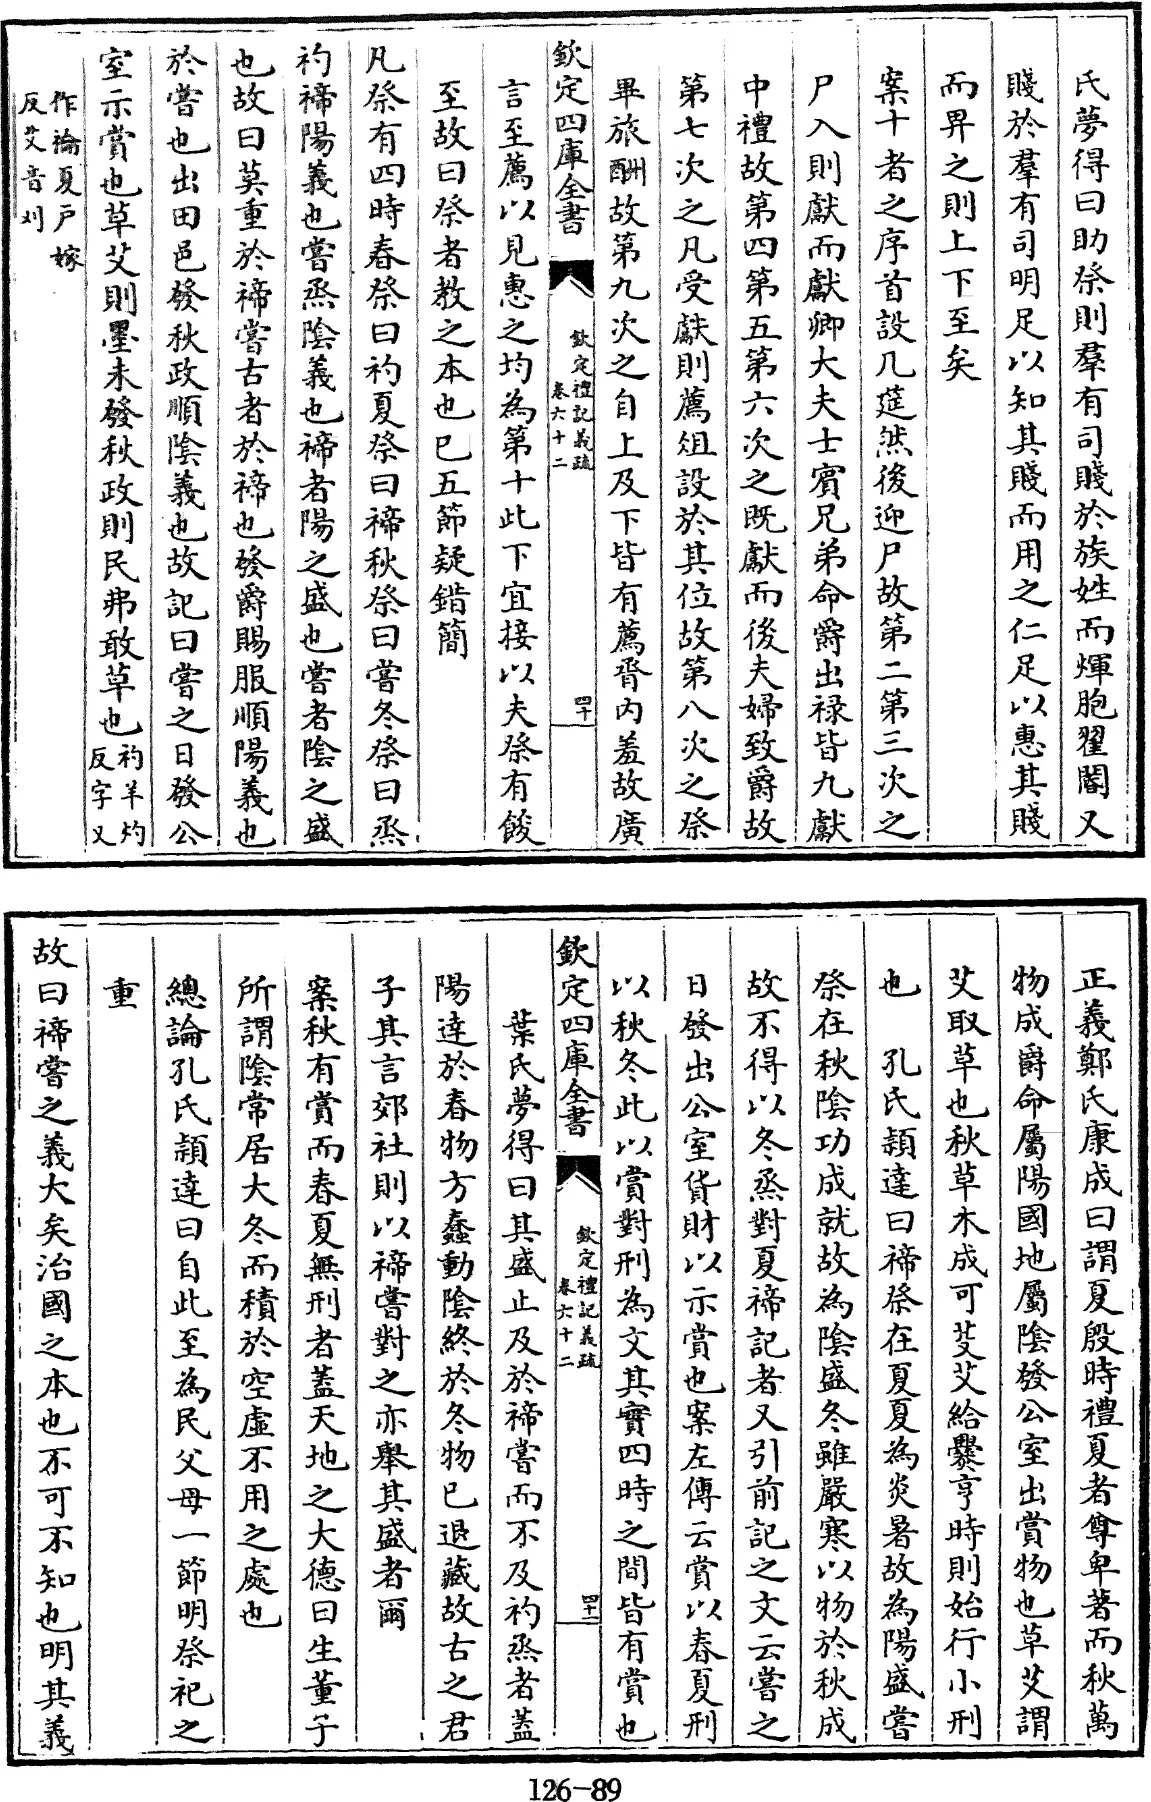 氏夢得曰助祭則羣有司賤於族姓而煇胞翟閽又
賤於羣有司明足以知其賤而用之仁足以惠其賤
而畀之則上下至矣
案十者之序首設几筵然後迎尸故第二第三次之
尸入則獻而獻卿大夫士賓兄弟命爵出祿皆九獻
中禮故第四第五第六次之既獻而後夫婦致爵故
第七次之凡受獻則薦俎設於其位故第八次之祭
畢旅酬故第九次之自上及下皆有薦脀内羞故廣
欽定四庫全書
欽定禮記義疏
卷六十二
四十
言至薦以見惠之均為第十此下宜接以夫祭有餕
至故曰祭者教之本也已五節疑錯簡
凡祭有四時春祭曰礿夏祭曰禘秋祭曰嘗冬祭曰烝
礿禘陽義也嘗烝陰義也禘者陽之盛也嘗者陰之盛
也故曰莫重於禘嘗古者於禘也發爵賜服順陽義也
於嘗也出田邑發秋政順陰義也故記曰嘗之日發公
室示賞也草艾則墨未發秋政則民弗敢草也礿羊灼
反字又
作禴夏戸嫁
反艾音刈
正義鄭氏康成曰謂夏殷時禮夏者尊卑著而秋萬
物成爵命屬陽國地屬陰發公室出賞物也草艾謂
艾取草也秋草木成可芟艾給爨亨時則始行小刑
也 孔氏穎達曰禘祭在夏夏為炎暑故為陽盛嘗
祭在秋陰功成就故為陰盛冬雖嚴寒以物於秋成
故不得以冬烝對夏禘記者又引前記之文云嘗之
日發出公室貨財以示賞也案左傳云賞以春夏刑
以秋冬此以賞對刑為文其實四時之間皆有賞也
欽定四庫全書
欽定禮記義疏
卷六十二
四十一
葉氏夢得曰其盛止及於禘嘗而不及礿烝者蓋
陽達於春物方蠢動陰終於冬物已退藏故古之君
子其言郊社則以禘嘗對之亦舉其盛者爾
案秋有賞而春夏無刑者蓋天地之大德曰生董子
所謂陰常居大冬而積於空虛不用之處也
總論孔氏穎達曰自此至為民父母一節明祭祀之
重
故曰禘嘗之義大矣治國之本也不可不知也明其義
126-89